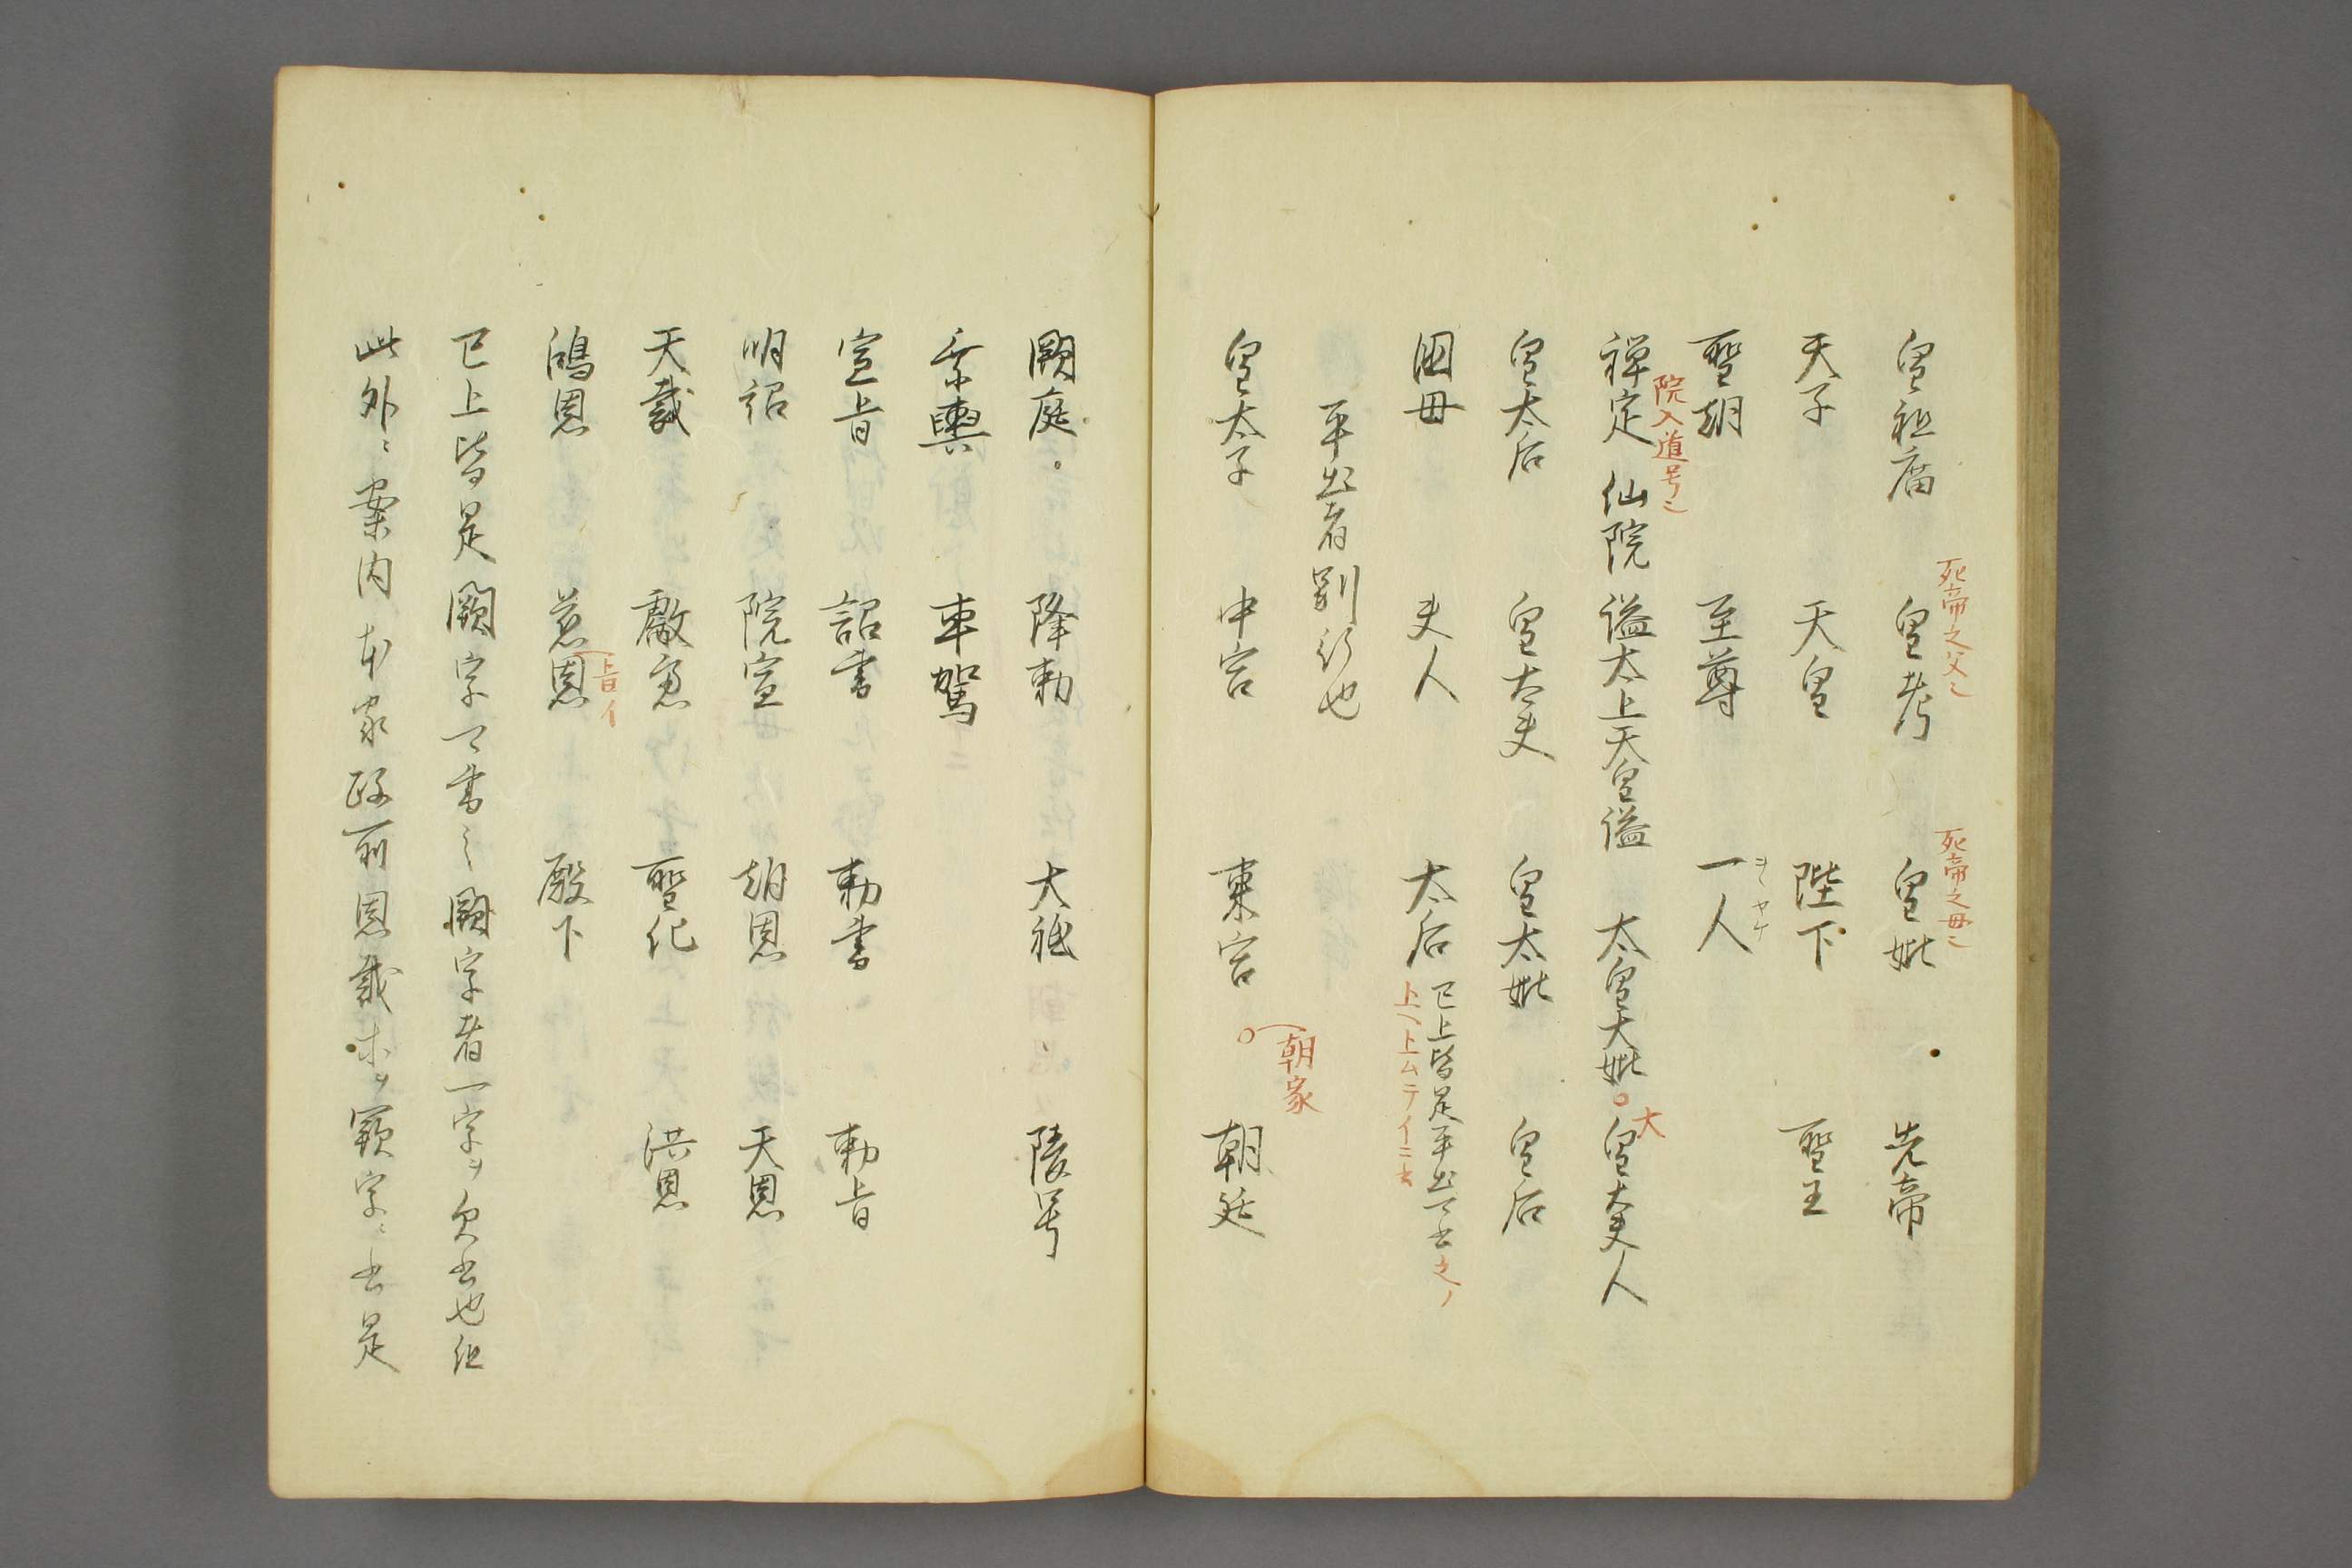 皇祖庿　皇考　皇妣　先帝
死帝之父也
死帝之母也
天子　天皇　陛下　聖主
聖朝　至尊　一人
院入道号也
禅定仙院　謚太上天皇謚　太皇大妣　皇大夫人
大
皇太后　皇太夫　皇太妣　皇后
国母　夫人　太后　已上皆是平出可書之
平出者別行也
皇太子　中宮　東宮　朝廷
朝家
闕庭　降勅　大社　陵号
乗輿　車駕
宣旨　詔書　勅書　勅旨
明詔　院宣　朝恩　天恩
天裁　叡慮　聖化　洪恩
鴻恩　慈恩　殿下
上旨イ
已上皆是闕字可書之闕字者一字ヲ欠書也但
此外ニ案内本家政所恩裁等ヲ闕字ニ書是